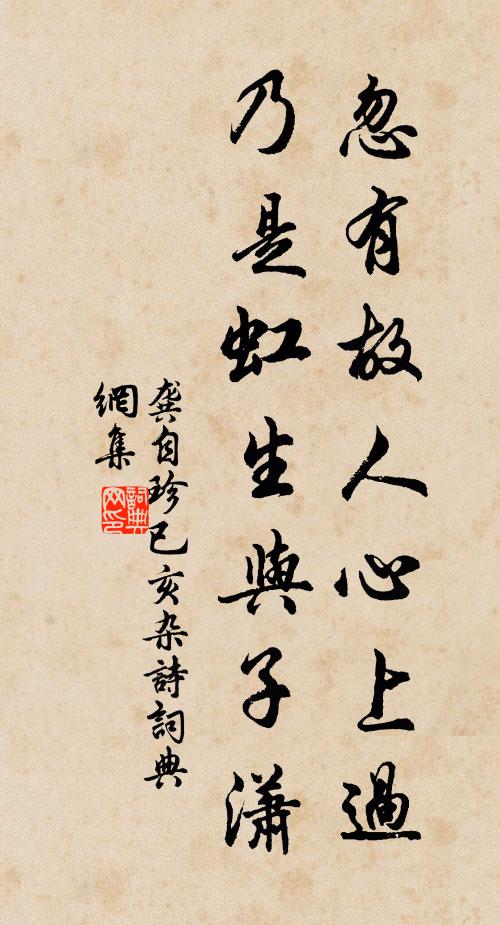 忽有故人心上過
乃是虹生與子瀟
龔自珍已亥杂詩詞典
網集
詞典网印